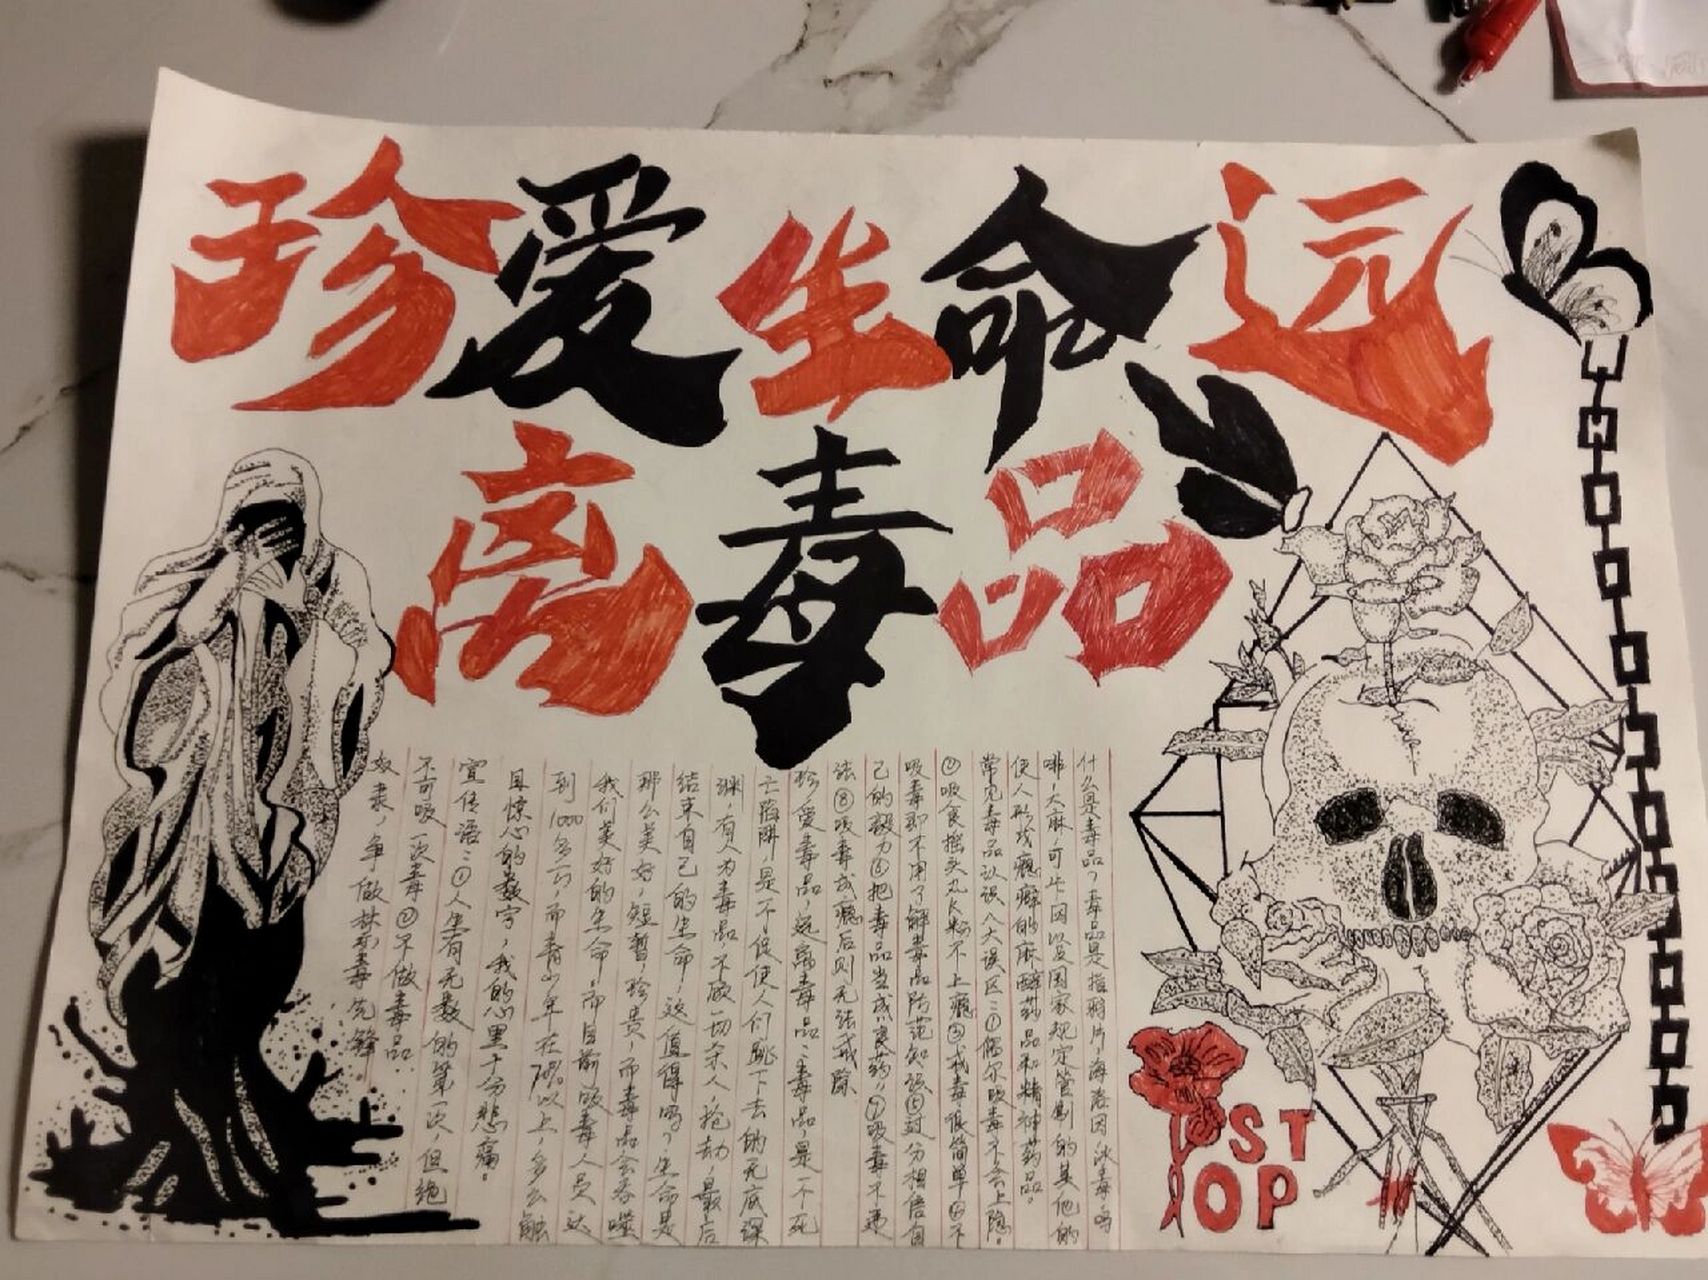 珍爱生命远
离毒品
什么是毒品？毒品是指鸦片，海洛因，冰毒，吗
啡，大麻，可卡因以及国家规定管制的其他的
使人形成瘾癖的麻醉药品和精神药品。
常见毒品认识八大误区：①偶尔吸毒不会上隐。
②吸食摇头丸K粉不上瘾③戒毒很简单④不
吸毒即不用了解毒品防范知识⑤过分相信自
己的毅力⑥把毒品当成良药，⑦吸毒不违
法⑧吸毒成瘾后则无法戒除
珍爱毒品，远离毒品：毒品是一不死
亡陷阱，是一个促使人们跳下去的无底深
渊，有人为毒品不顾一切杀人，抢劫，最后
结束自己的生命，这值得吗？生命是
那么美好，短暂，珍贵，而毒品会吞噬
我们美好的生命，而目前吸毒人员达
到1000多万，而青少年在70%以上，多么触
目惊心的数字，我的心里十分悲痛。
宣传语：①人生有无数的第一次，但绝
不可吸一次毒②不做毒品
奴隶，争做禁毒先锋。
ST
OP